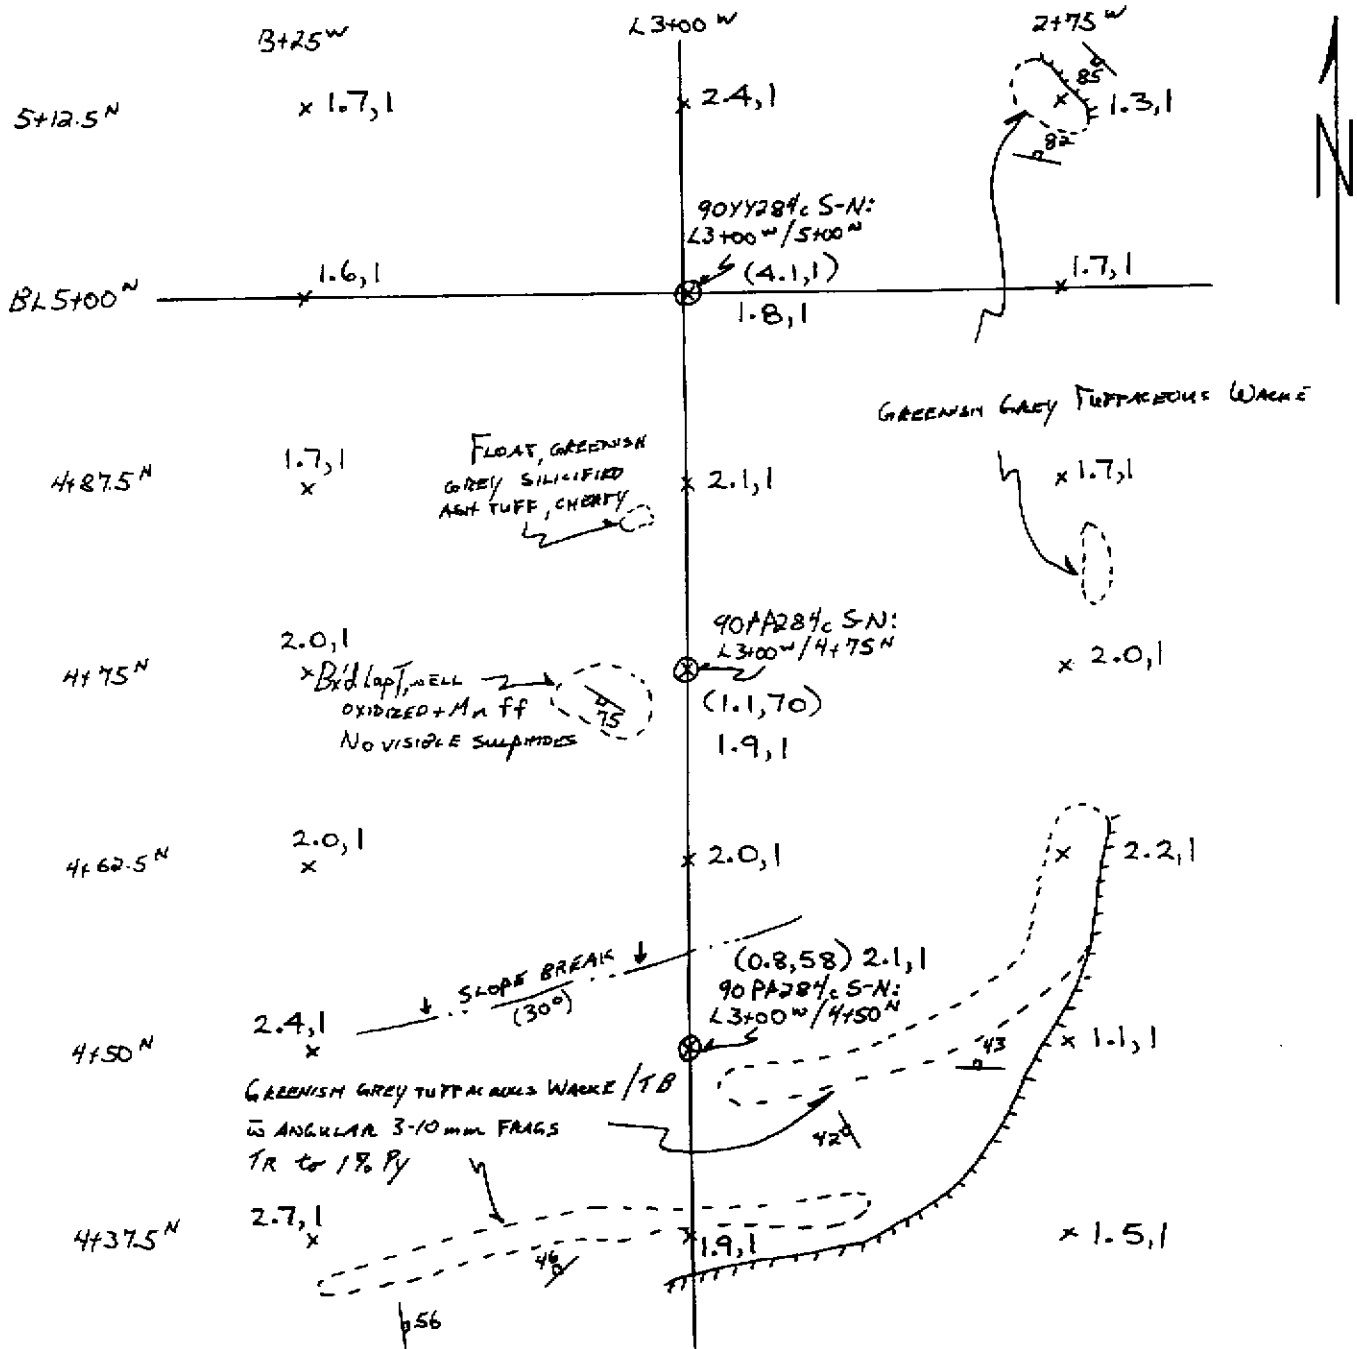 3+25 W
L3+00 W
2+75 W
5+12.5 N
1.7, 1
2.4, 1
85
1.3, 1
82
N
90YY284c S-N:
L3+00 W / 5+00 N
(4.1, 1)
BL5+00 N
1.6, 1
1.8, 1
1.7, 1
GREENISH GREY TUFFACEOUS WACKE
4+87.5 N
1.7, 1
FLOAT, GREENISH
GREY SILICIFIED
ASH TUFF, CHERTY
2.1, 1
1.7, 1
90PA284c S-N:
L3+00 W / 4+75 N
4+75 N
2.0, 1
Bx'd LapT, WELL
OXIDIZED + Mn ff
NO VISIBLE SULPHIDES
75
(1.1, 70)
1.9, 1
2.0, 1
4+62.5 N
2.0, 1
2.0, 1
2.2, 1
SLOPE BREAK
(30°)
(0.8, 58) 2.1, 1
90PA284c S-N:
L3+00 W / 4+50 N
4+50 N
2.4, 1
43
1.1, 1
GREENISH GREY TUFFACEOUS WACKE / TB
w̄ ANGULAR 3-10 mm FRAGS
TR to 1% Py
42
4+37.5 N
2.7, 1
46
1.9, 1
1.5, 1
56